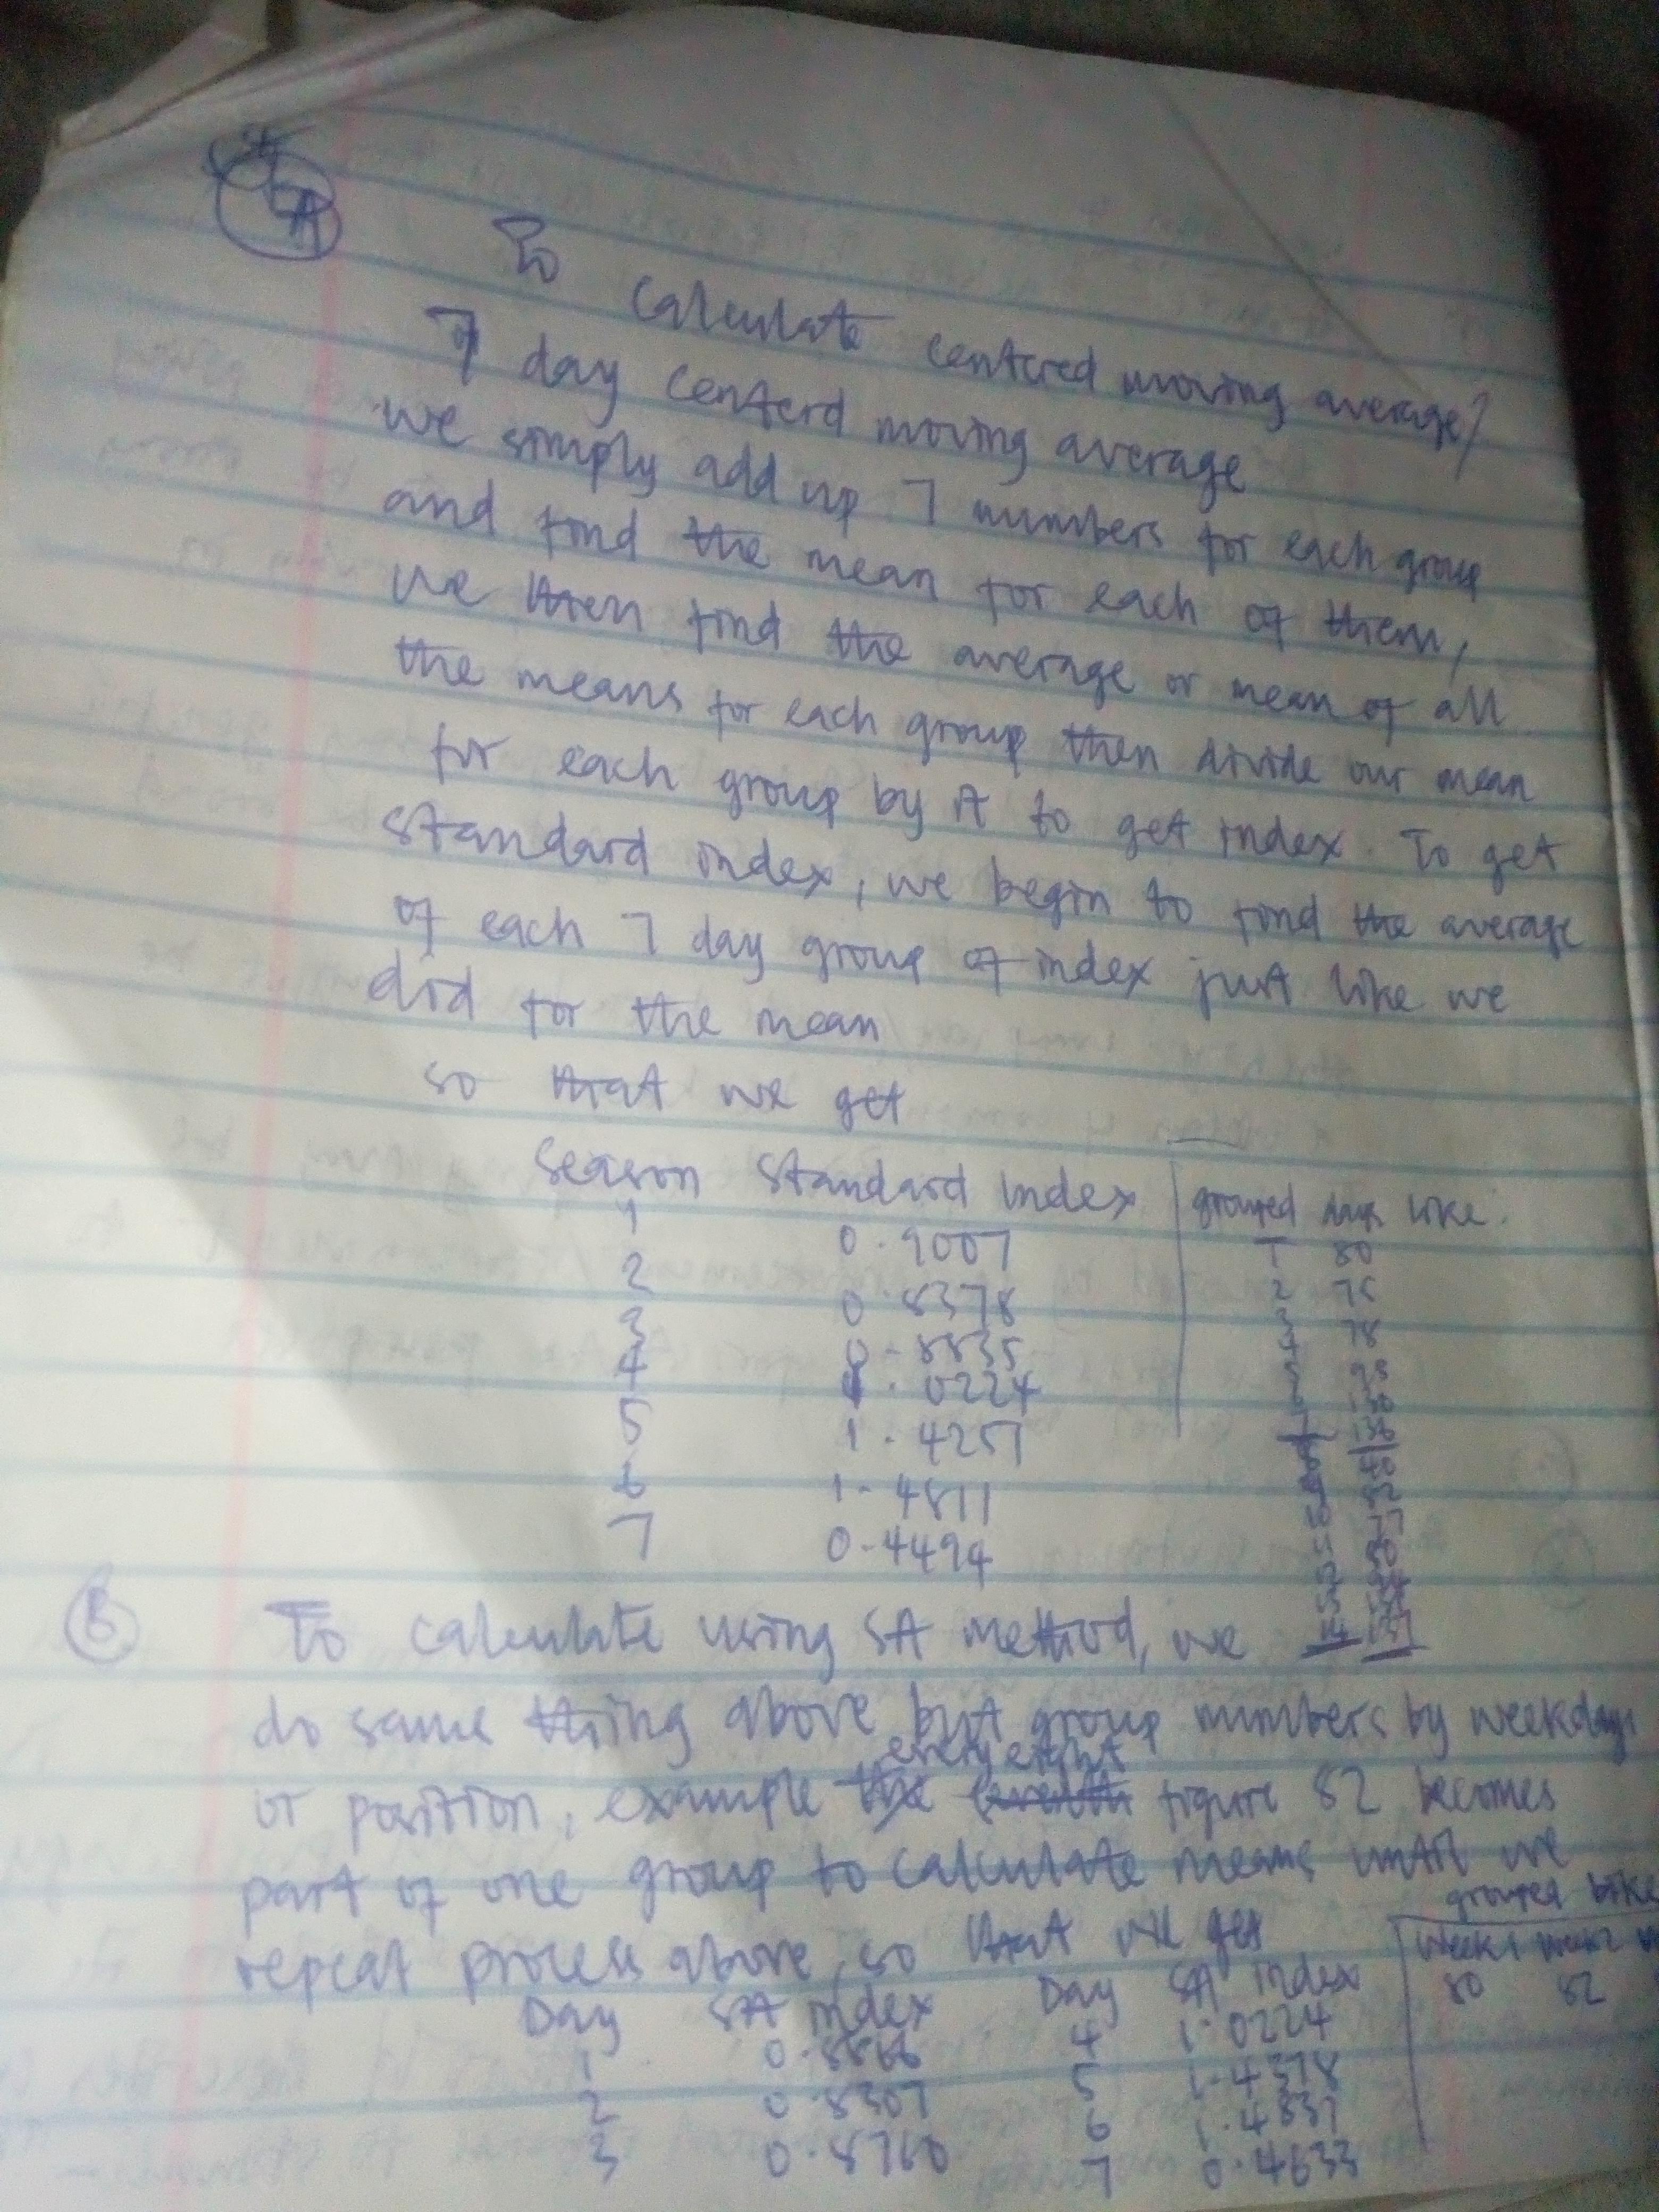 A
To calculate centered moving average?
7 day centerd moving average
we simply add up 7 numbers for each group
and find the mean for each of them,
we then find the average or mean of all
the means for each group then divide our mean
for each group by A to get index. To get
standard index, we begin to find the average
of each 7 day group of index just like we
did for the mean
so that we get
Season Standard Index
1 0.9007
2 0.8378
3 0.8835
4 1.0224
5 1.4257
6 1.4811
7 0.4494
grouped days like:
1 80
2 75
3 78
4 95
5 130
136
40
82
77
80
B
To calculate using SA method, we
do same thing above but group numbers by weekdays
or position, example every eight figure 82 becomes
part of one group to calculate means until we
repeat process above, so that we get
Day SA index
1 0.8866
2 0.8307
3 0.8760
Day SA index
4 1.0224
5 1.4378
6 1.4837
7 0.4633
grouped like
week1 week2
80 82